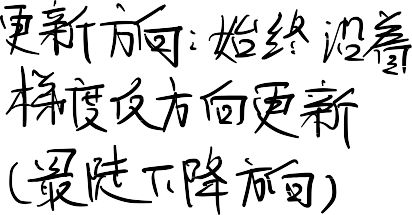 更新方向：始终沿着
梯度反方向更新
(最陡下降方向)